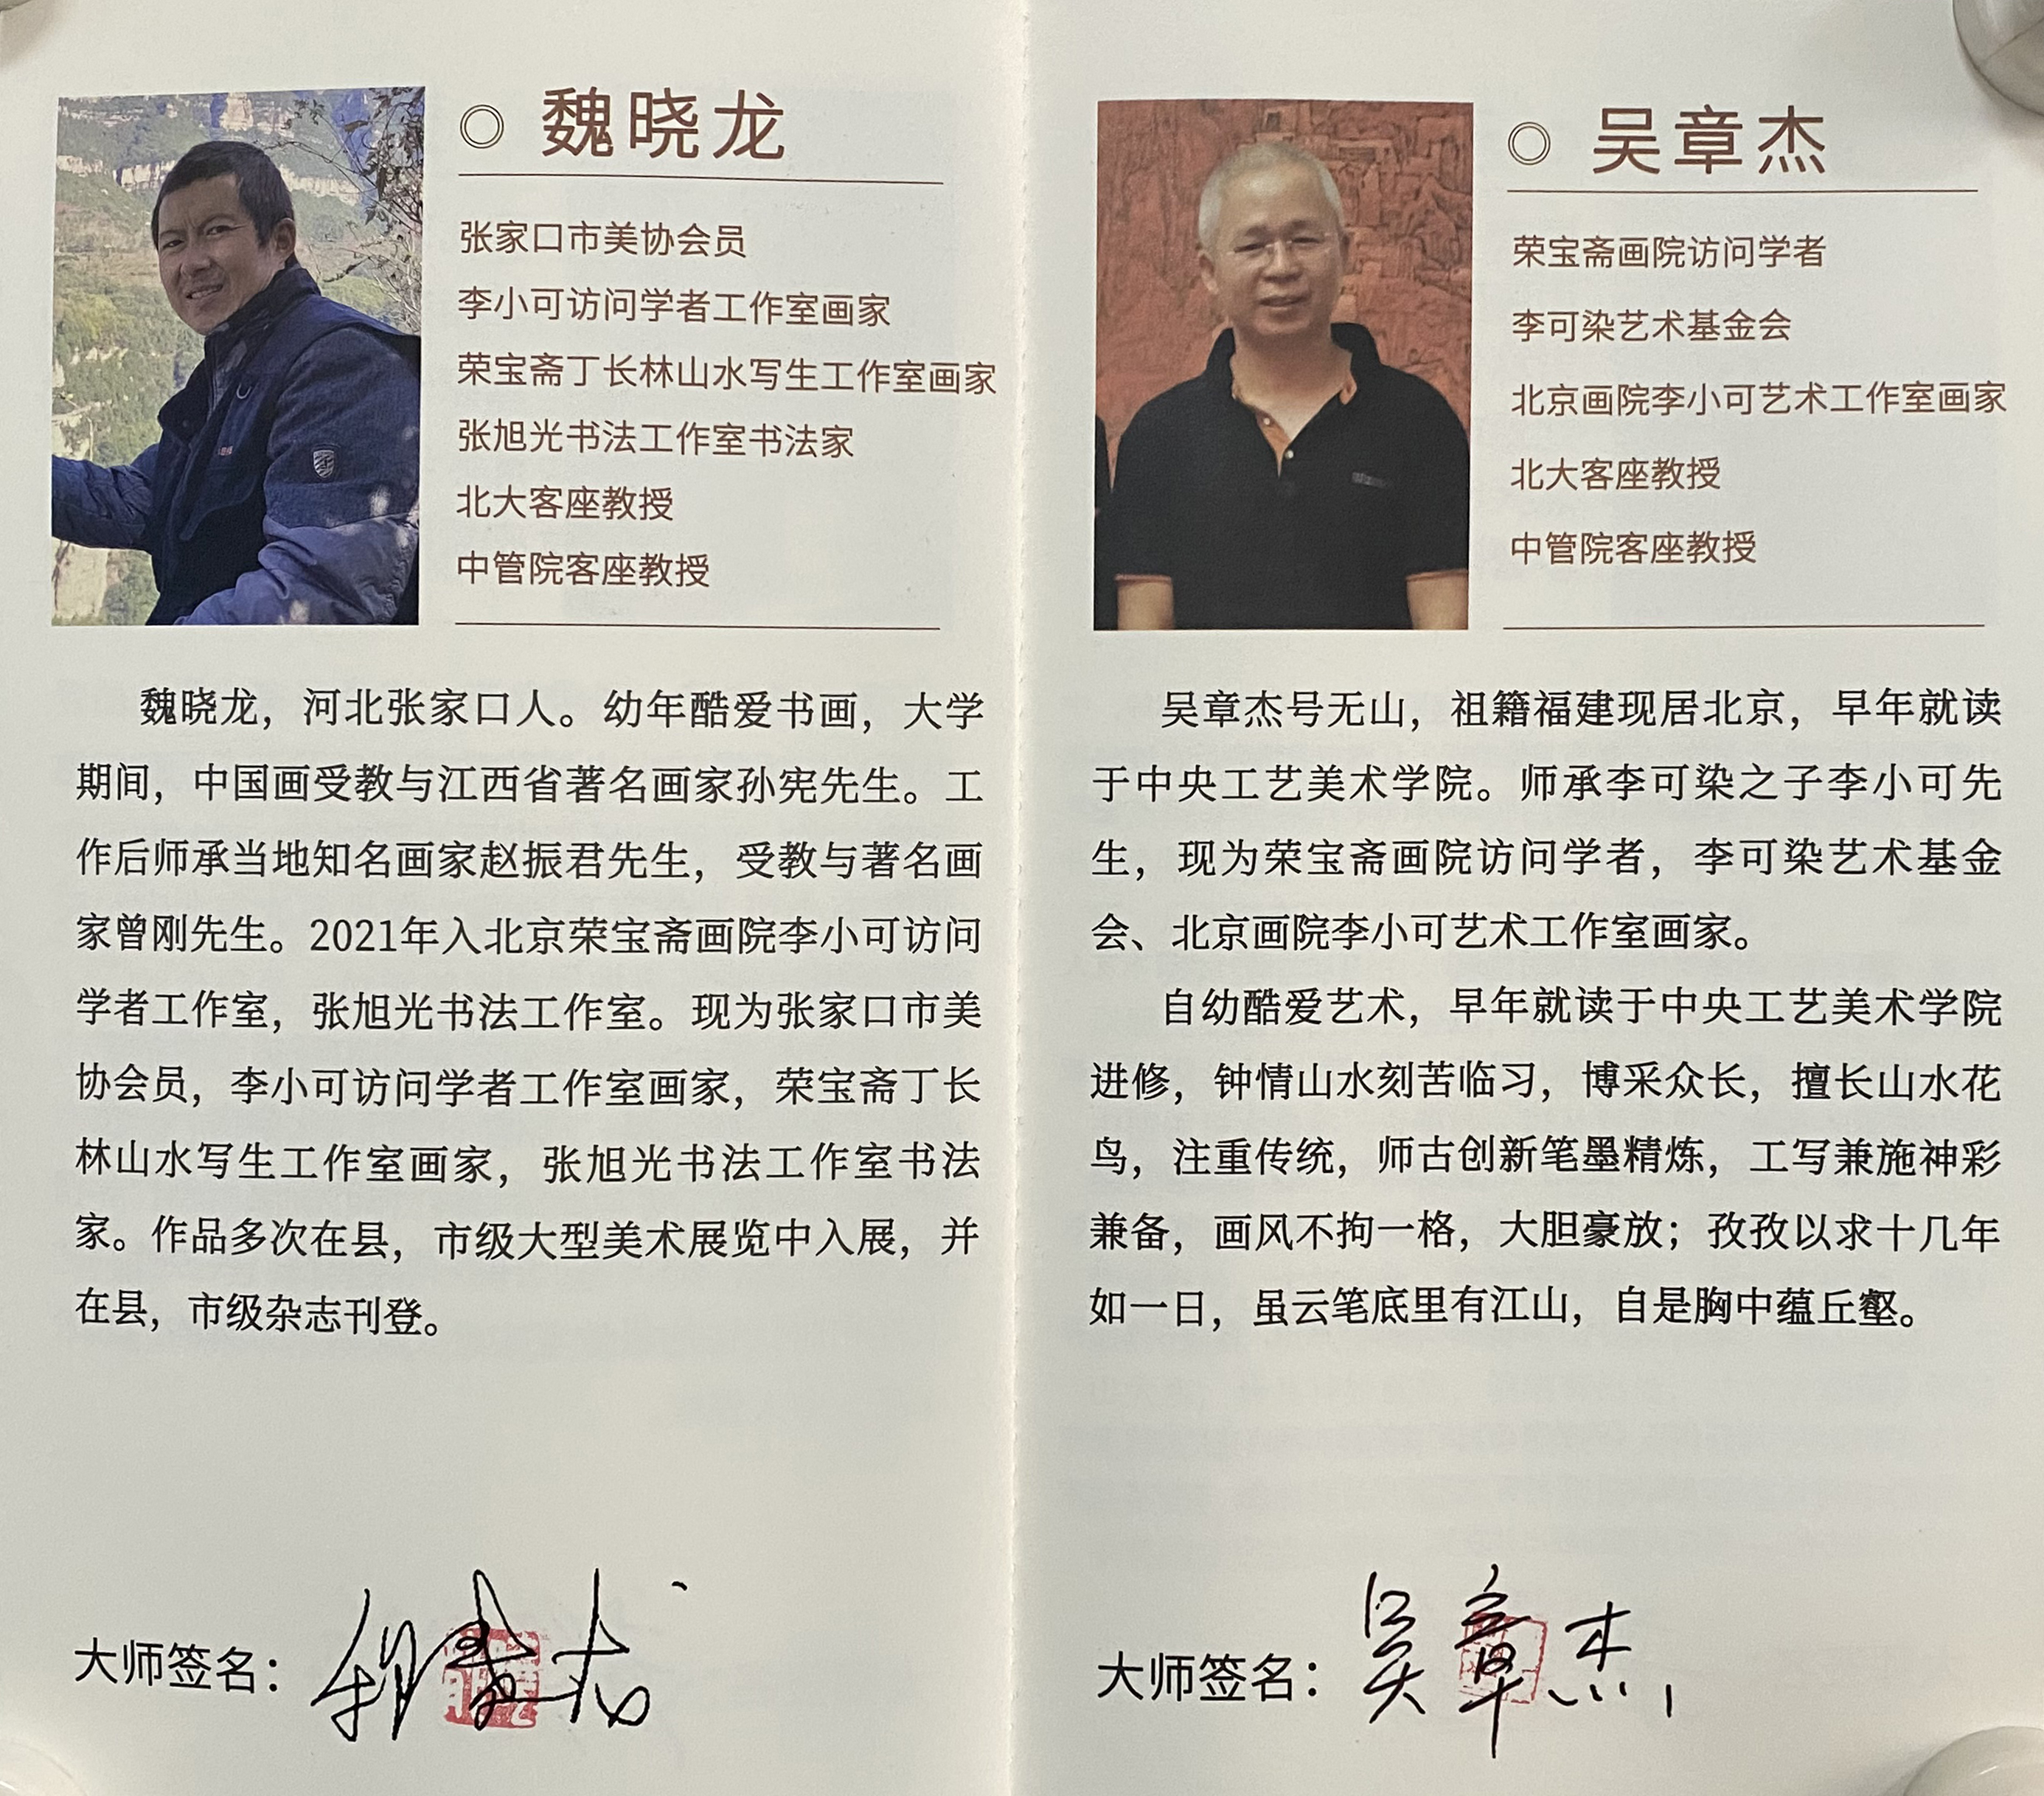 ◎ 魏晓龙
张家口市美协会员
李小可访问学者工作室画家
荣宝斋丁长林山水写生工作室画家
张旭光书法工作室书法家
北大客座教授
中管院客座教授
魏晓龙，河北张家口人。幼年酷爱书画，大学
期间，中国画受教与江西省著名画家孙宪先生。工
作后师承当地知名画家赵振君先生，受教与著名画
家曾刚先生。2021年入北京荣宝斋画院李小可访问
学者工作室，张旭光书法工作室。现为张家口市美
协会员，李小可访问学者工作室画家，荣宝斋丁长
林山水写生工作室画家，张旭光书法工作室书法
家。作品多次在县，市级大型美术展览中入展，并
在县，市级杂志刊登。
大师签名：
◎ 吴章杰
荣宝斋画院访问学者
李可染艺术基金会
北京画院李小可艺术工作室画家
北大客座教授
中管院客座教授
吴章杰号无山，祖籍福建现居北京，早年就读
于中央工艺美术学院。师承李可染之子李小可先
生，现为荣宝斋画院访问学者，李可染艺术基金
会、北京画院李小可艺术工作室画家。
自幼酷爱艺术，早年就读于中央工艺美术学院
进修，钟情山水刻苦临习，博采众长，擅长山水花
鸟，注重传统，师古创新笔墨精炼，工写兼施神彩
兼备，画风不拘一格，大胆豪放；孜孜以求十几年
如一日，虽云笔底里有江山，自是胸中蕴丘壑。
大师签名：吴章杰